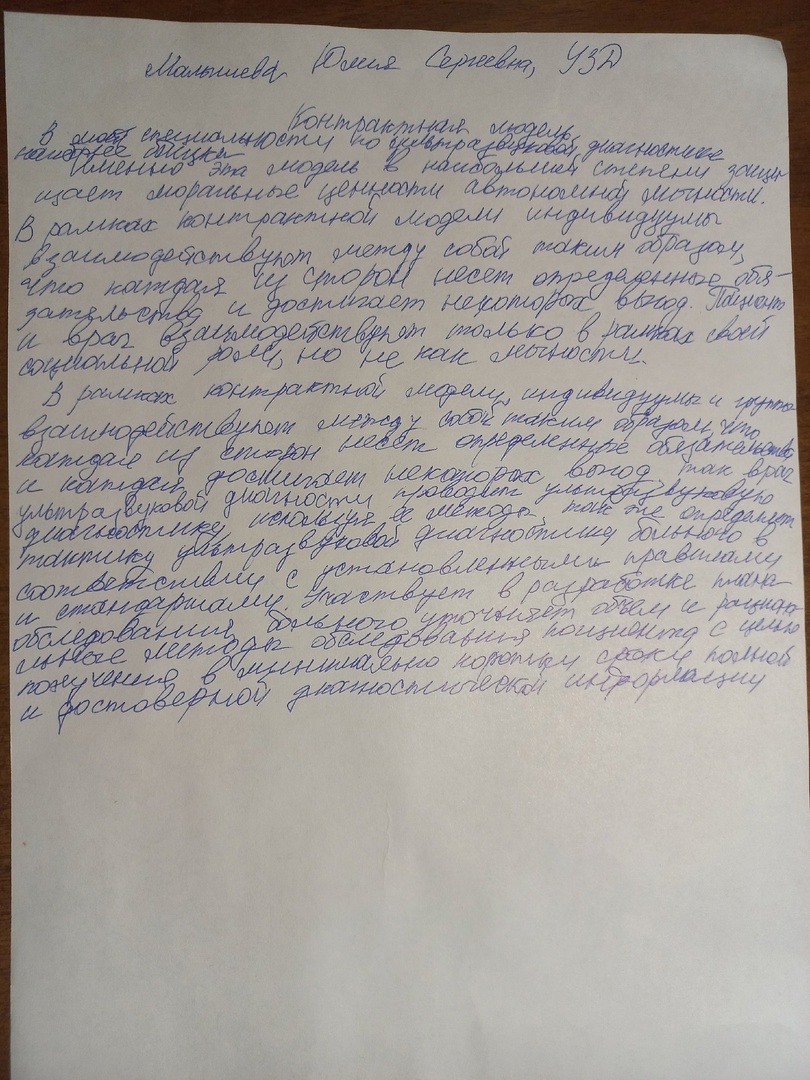 Малышева Юлия Сергеевна, УЗД
Контрактная модель
В моей специальности по ультразвуковой диагностике
наиболее близка
Именно эта модель в наибольшей степени защи-
щает моральные ценности автономной личности.
В рамках контрактной модели индивидуумы
взаимодействуют между собой таким образом,
что каждая из сторон несет определенные обя-
зательства и достигает некоторых выгод. Пациент
и врач взаимодействует только в рамках своей
социальной роли, но не как личности.
В рамках контрактной модели, индивидуумы и группы
взаимодействует между собой таким образом, что
каждая из сторон несет определенные обязательства
и каждая достигает некоторых выгод, так врач
ультразвуковой диагности проводит ультразвуковую
диагностику используя ее методы, так же определяет
тактику ультразвуковой диагностики больного в
соответствии с установленными правилами
и стандартами. Участвует в разработке плана
обследования больного уточняет объем и рацион
льные методы обследования пациента с целью
получения в минимально короткие сроки полной
и достоверной диагностической информации